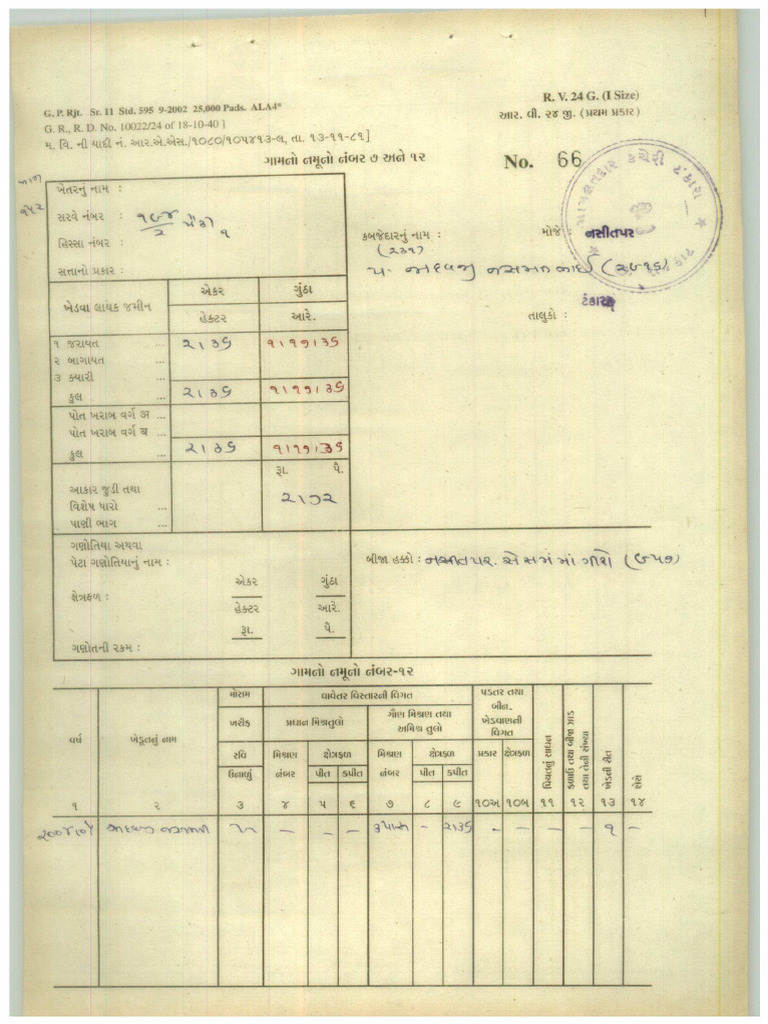 G. P. Rjt. Sr. 11 Std. 595 9-2002 25,000 Pads. ALA4*
G. R., R. D. No. 10022/24 of 18-10-40 ]
મ. વિ. ની યાદી નં. આર.એ.એસ./૧૦૮૦/૧૦૫૪૧૩-લ, તા. ૧૩-૧૧-૮૧]
R. V. 24 G. (I Size)
આર. વી. ૨૪ જી. (પ્રથમ પ્રકાર)
ગામનો નમૂનો નંબર ૭ અને ૧૨
No. 66
મામલતદાર કચેરી ટંકારા
ખેતરનું નામ :
સરવે નંબર : ૧૯૪/૨ પૈકી ૧
હિસ્સા નંબર :
સત્તાનો પ્રકાર :
કબજેદારનું નામ :
(૨૩૧)
મોજે : નસીતપર
ટંકારા
તાલુકો :
ખેડવા લાયક જમીન
એકર ગુંઠા
હેક્ટર આરે.
૧ જરાયત ... ૨।૩૬ ૧।૧૧।૩૬
૨ બાગાયત ...
૩ ક્યારી ...
કુલ ... ૨।૩૬ ૧।૧૧।૩૬
પોત ખરાબ વર્ગ अ ...
પોત ખરાબ વર્ગ ब ...
કુલ ... ૨।૩૬ ૧।૧૧।૩૬
રૂા. પૈ.
આકાર જુડી તથા
વિશેષ ધારો ...
પાણી ભાગ ...
ગણોતિયા અથવા
પેટા ગણોતિયાનું નામ :
બીજા હક્કો : નસીતપર.
એકર ગુંઠા
ક્ષેત્રફળ :
હેક્ટર આરે.
રૂા. પૈ.
ગણોતની રકમ :
ગામનો નમૂનો નંબર-૧૨
વર્ષ
ખેડૂતનું નામ
મોસમ
ખરીફ
રવિ
ઉનાળું
વાવેતર વિસ્તારની વિગત
પ્રધાન મિશ્રતુલો
મિશ્રણ નંબર
ક્ષેત્રફળ
પીત કપીત
ગૌણ મિશ્રણ તથા
અમિશ્ર તુલો
મિશ્રણ નંબર
ક્ષેત્રફળ
પીત કપીત
પડતર તથા
બીન.
ખેડવાણની
વિગત
પ્રકાર ક્ષેત્રફળ
પિયતનું સાધન
ફળાઉ તથા બીજા ઝાડ
તથા તેની સંખ્યા
ખેડની રીત
શેરો
૧ ૨ ૩ ૪ ૫ ૬ ૭ ૮ ૯ ૧૦અ ૧૦બ ૧૧ ૧૨ ૧૩ ૧૪
– – – – ૨।૩૬ – – – – ૧ –